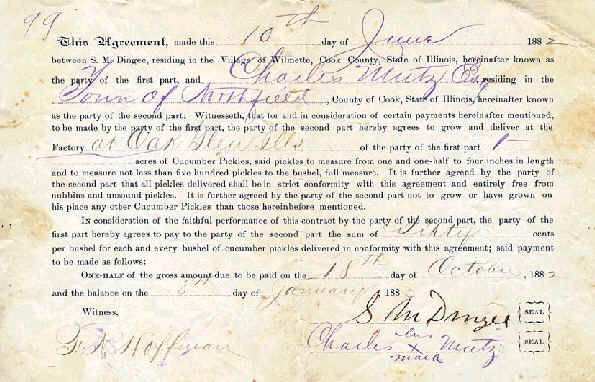 99
This Agreement, made this 10th day of June 1882
between S. M. Dingee, residing in the Village of Wilmette, Cook County, State of Illinois, hereinafter known as
the party of the first part, and Charles Mutz Esq residing in the
Town of Northfield, County of Cook, State of Illinois, hereinafter known
as the party of the second part: Witnesseth, that for and in consideration of certain payments hereinafter mentioned,
to be made by the party of the first part, the party of the second part hereby agrees to grow and deliver at the
Factory at of the party of the first part 1
acres of Cucumber Pickles, said pickles to measure from one and one-half to four inches in length
and to measure not less than five hundred pickles to the bushel, full measure. It is further agreed by the party of
the second part that all pickles delivered shall be in strict conformity with this agreement and entirely free from
nubbins and unsound pickles. It is further agreed by the party of the second part not to grow or have grown on
his place any other Cucumber Pickles than those hereinbefore mentioned.
In consideration of the faithful performance of this contract by the party of the second part, the party of the
first part hereby agrees to pay to the party of the second part the sum of Sixty cents
per bushel for each and every bushel of cucumber pickles delivered in conformity with this agreement; said payment
to be made as follows:
One-half of the gross amount due to be paid on the 15th day of October, 1882
and the balance on the day of January 188
Witness, S M Dingee SEAL
Hoffman Charles his x mark Mutz SEAL